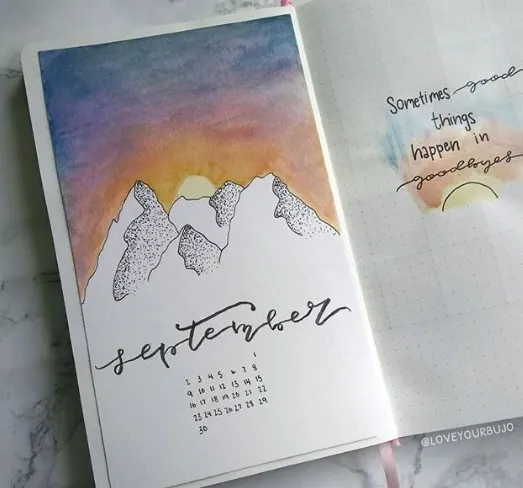 september
1
2 3 4 5 6 7 8
9 10 11 12 13 14 15
16 17 18 19 20 21 22
23 24 25 26 27 28 29
30
Sometimes good
things
happen in
goodbyes
@LOVEYOURBUJO